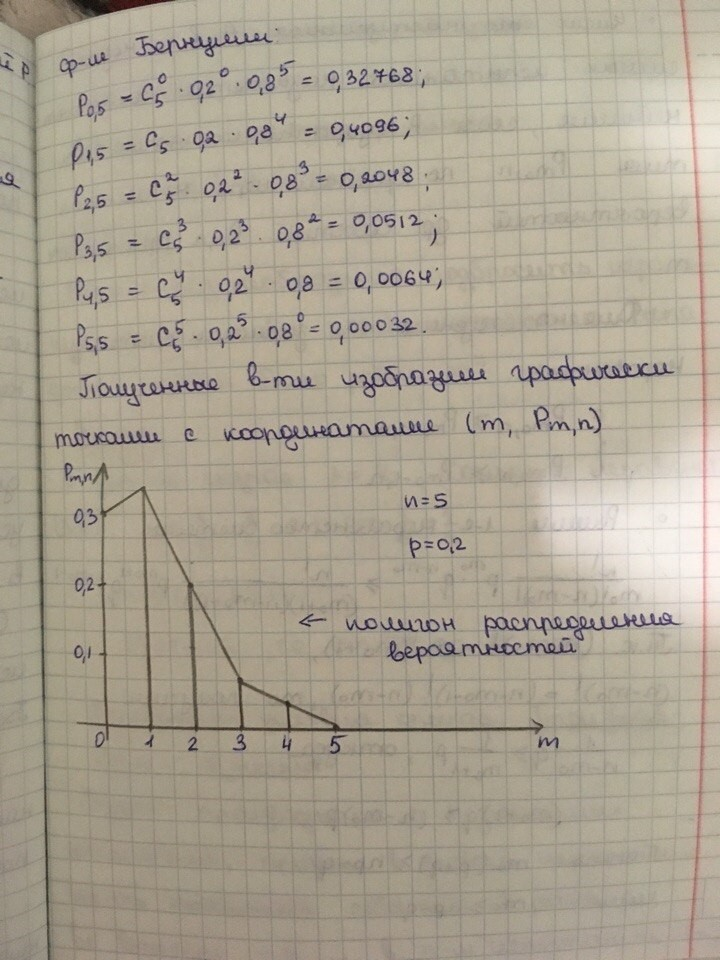 ф-ле Бернулли:
P₀,₅ = C₅⁰ · 0,2⁰ · 0,8⁵ = 0,32768;
P₁,₅ = C₅ · 0,2 · 0,8⁴ = 0,4096;
P₂,₅ = C₅² · 0,2² · 0,8³ = 0,2048;
P₃,₅ = C₅³ · 0,2³ · 0,8² = 0,0512;
P₄,₅ = C₅⁴ · 0,2⁴ · 0,8 = 0,0064;
P₅,₅ = C₅⁵ · 0,2⁵ · 0,8⁰ = 0,00032.
Полученные в-ти изобразим графически
точками с координатами (m, Pm,n)
Pm,n
0,3
0,2
0,1
0 1 2 3 4 5 m
n=5
p=0,2
← полигон распределения
вероятностей